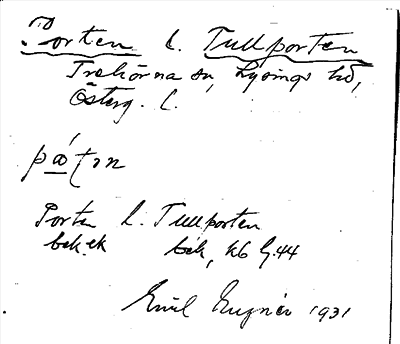 Porten l. Tullporten
Trehörna sn, Lysings hd,
Österg. l.
Porten l. Tullporten
bek. ek bek, kb
Emil 1931